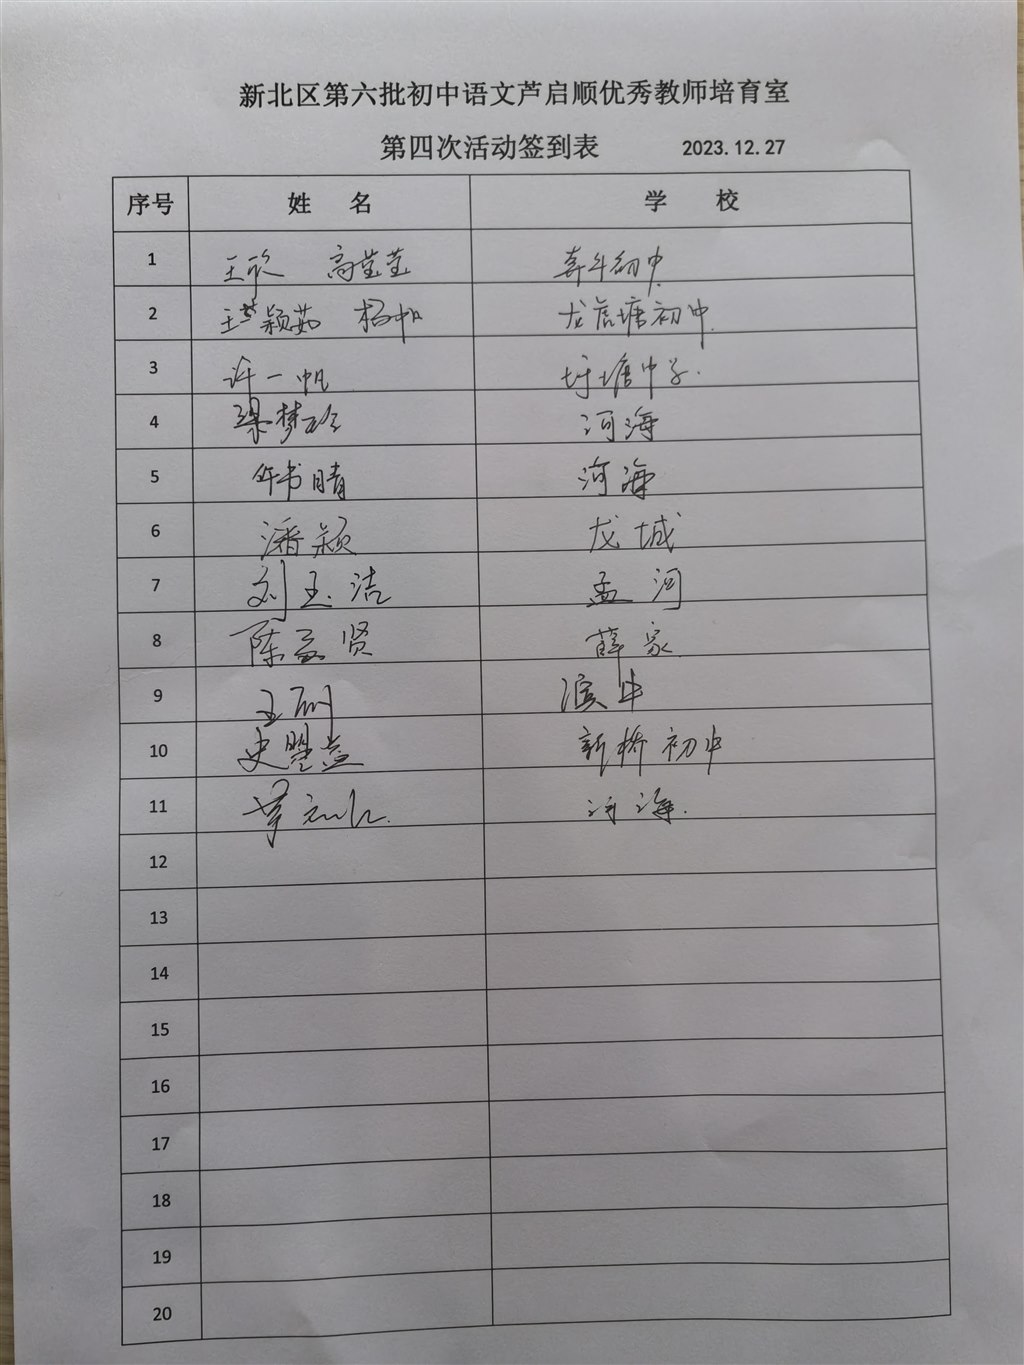 新北区第六批初中语文芦启顺优秀教师培育室
第四次活动签到表 2023.12.27
序号 姓 名 学 校
1 王欣 高莹莹 奔牛初中
2 颖茹 杨帆 龙虎塘初中
3 许一帆 圩塘中学
4 梁梦玲 河海
5 仵书晴 河海
6 潘颖 龙城
7 刘玉洁 孟河
8 陈孟贤 薛家
9 王丽 滨中
10 史曌益 新桥初中
11 河海
12
13
14
15
16
17
18
19
20